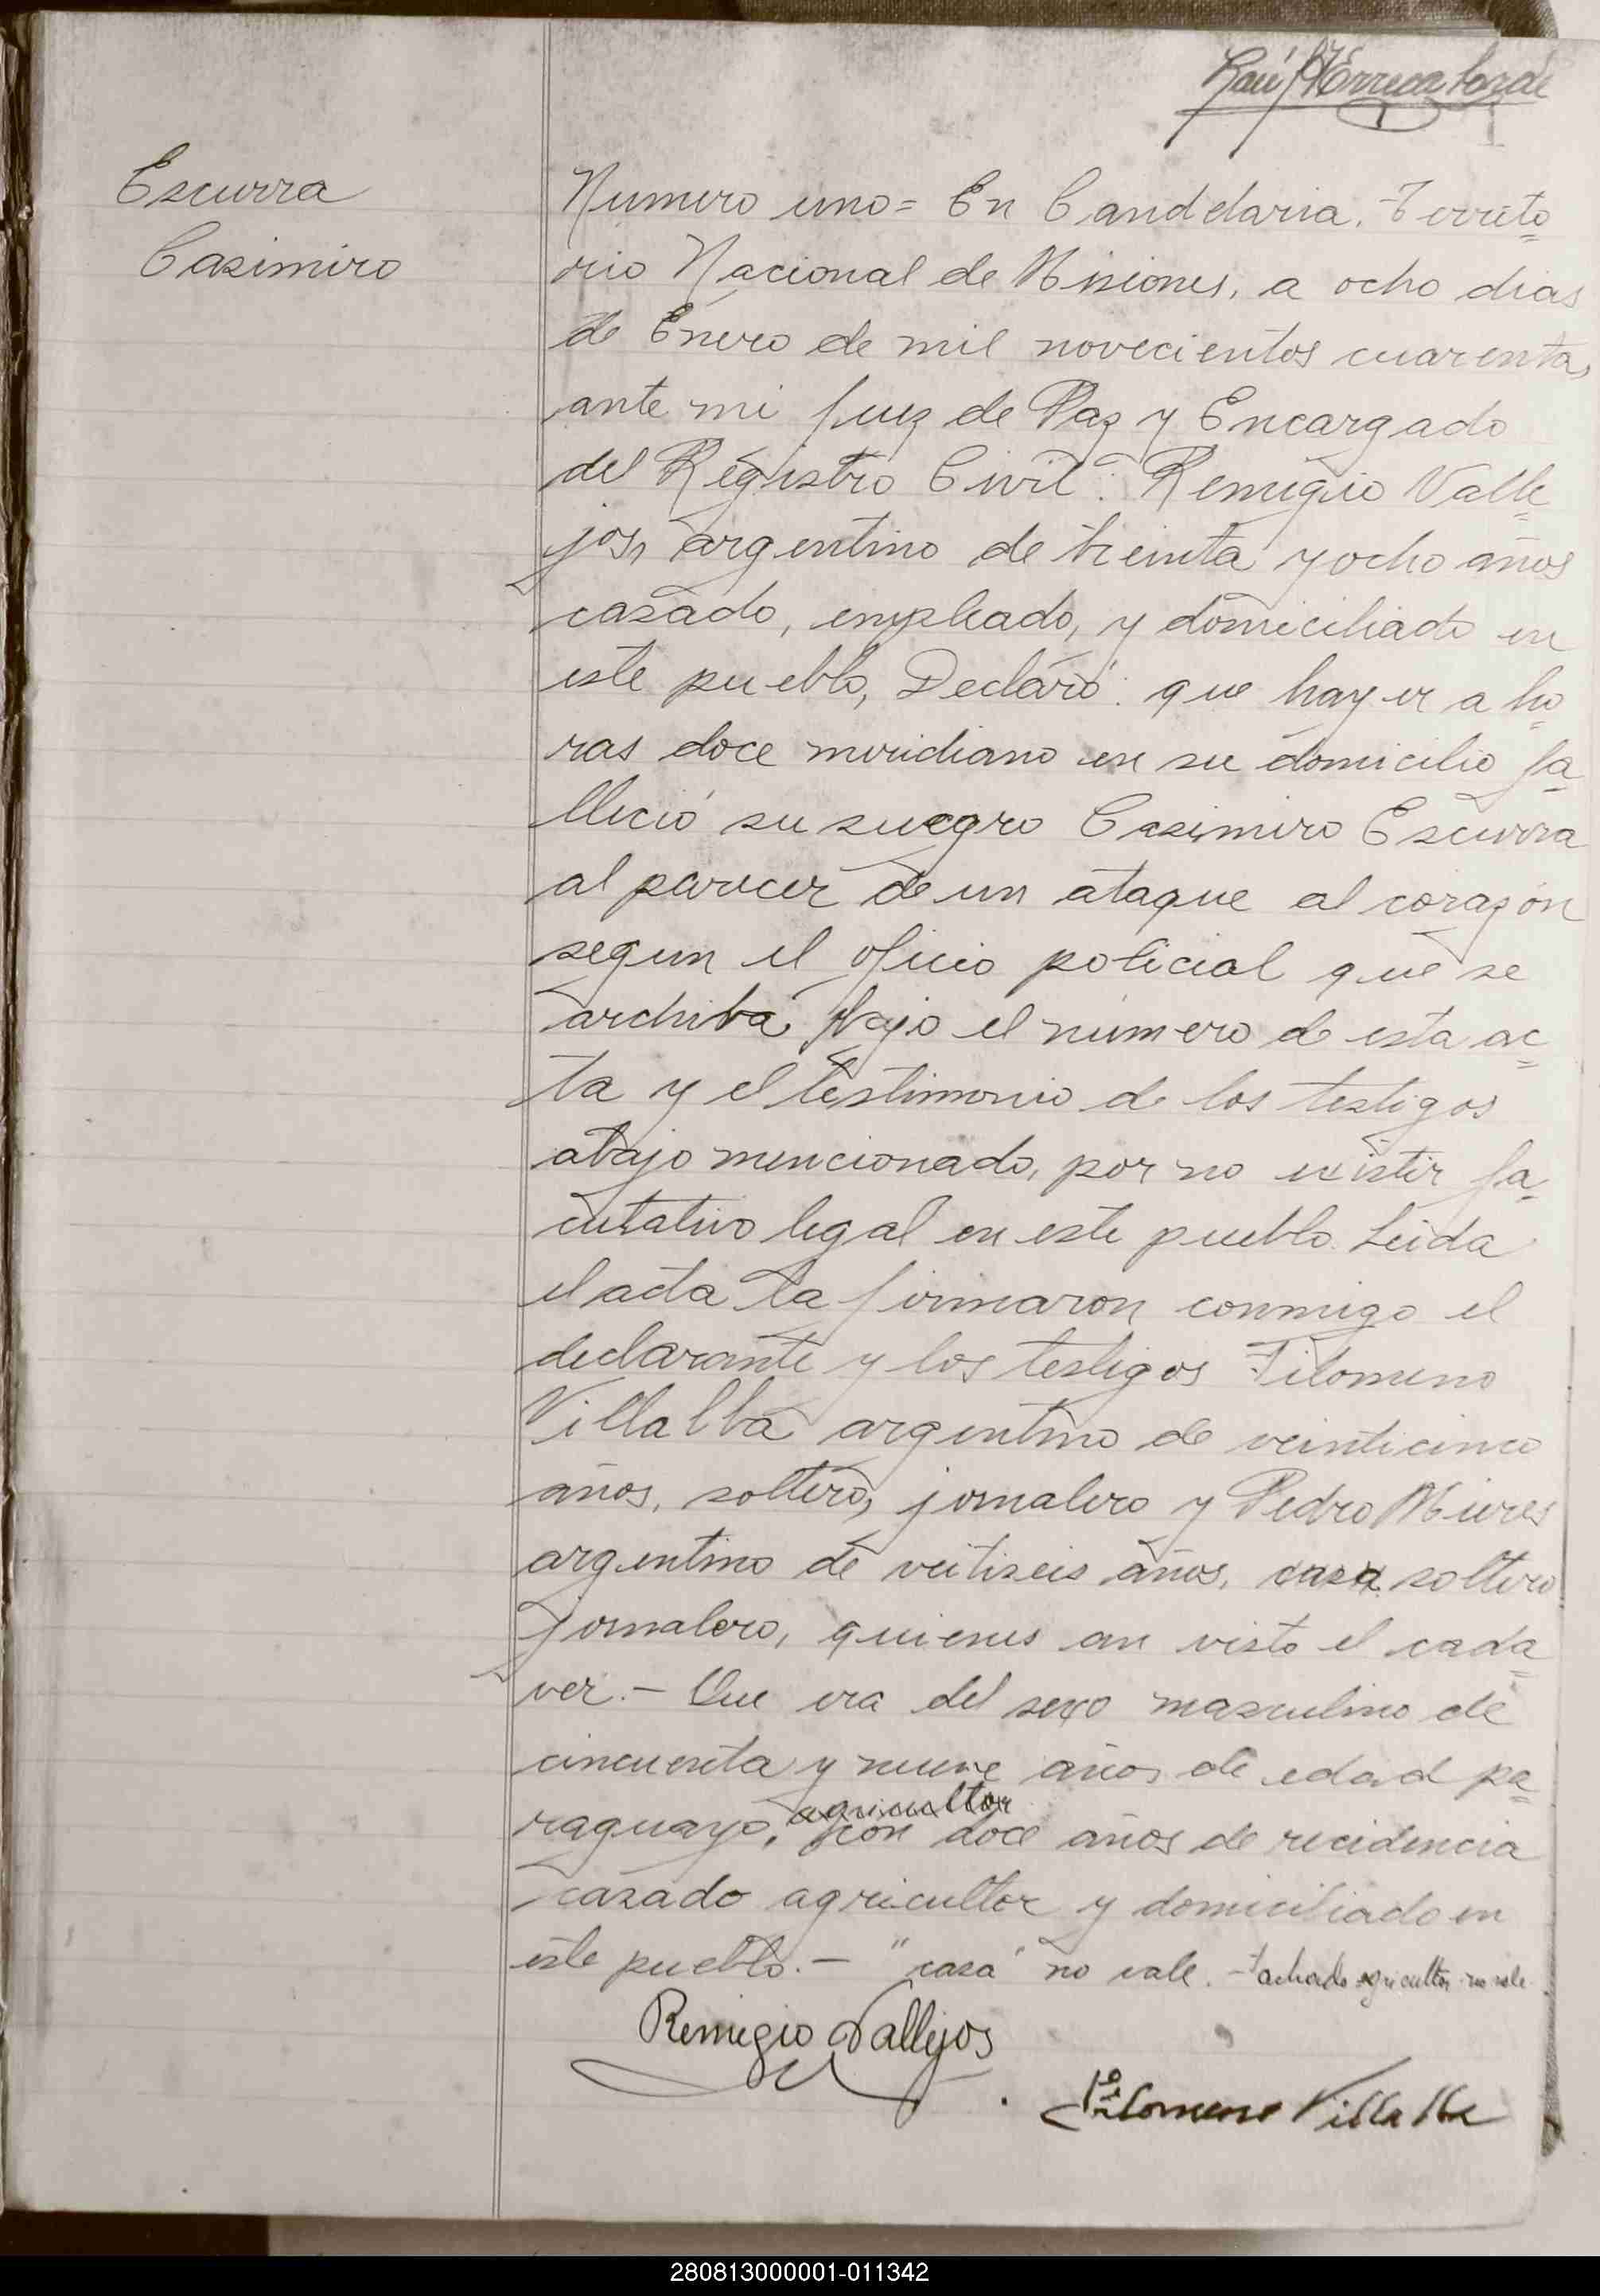 Raúl Errecaborde
Escurra
Casimiro
Número uno= En Candelaria. Territo=
rio Nacional de Misiones, a ocho dias
de Enero de mil novecientos cuarenta,
ante mi Juez de Paz y Encargado
del Registro Civil: Remigio Valle=
jos, argentino de treinta y ocho años
casado, empleado, y domiciliado en
este pueblo, Declaró: que hayer a ho=
ras doce meridiano en su domicilio fa=
lleció su suegro Casimiro Escurra
al parecer de un ataque al corazón
segun el oficio policial que se
archiba bajo el número de esta ac=
ta y el testimonio de los testigos
abajo mencionado, por no existir fa=
cutativo legal en este pueblo. Leida
el acta la firmaron conmigo el
declarante y los testigos Filomeno
Villalba argentino de veinticinco
años, soltero, jornalero y Pedro Mieres
argentino de veitiseis años, casa soltero
jornalero, quienes an visto el cada=
ver.- Que era del sexo masculino de
cincuenta y nueve años de edad pa=
agricultor
raguayo, con doce años de recidencia
casado agricultor y domiciliado en
este pueblo.- "casa" no vale. -Tachado agricultor no vale
Remigio Vallejos
Filomeno Villalba
280813000001-011342